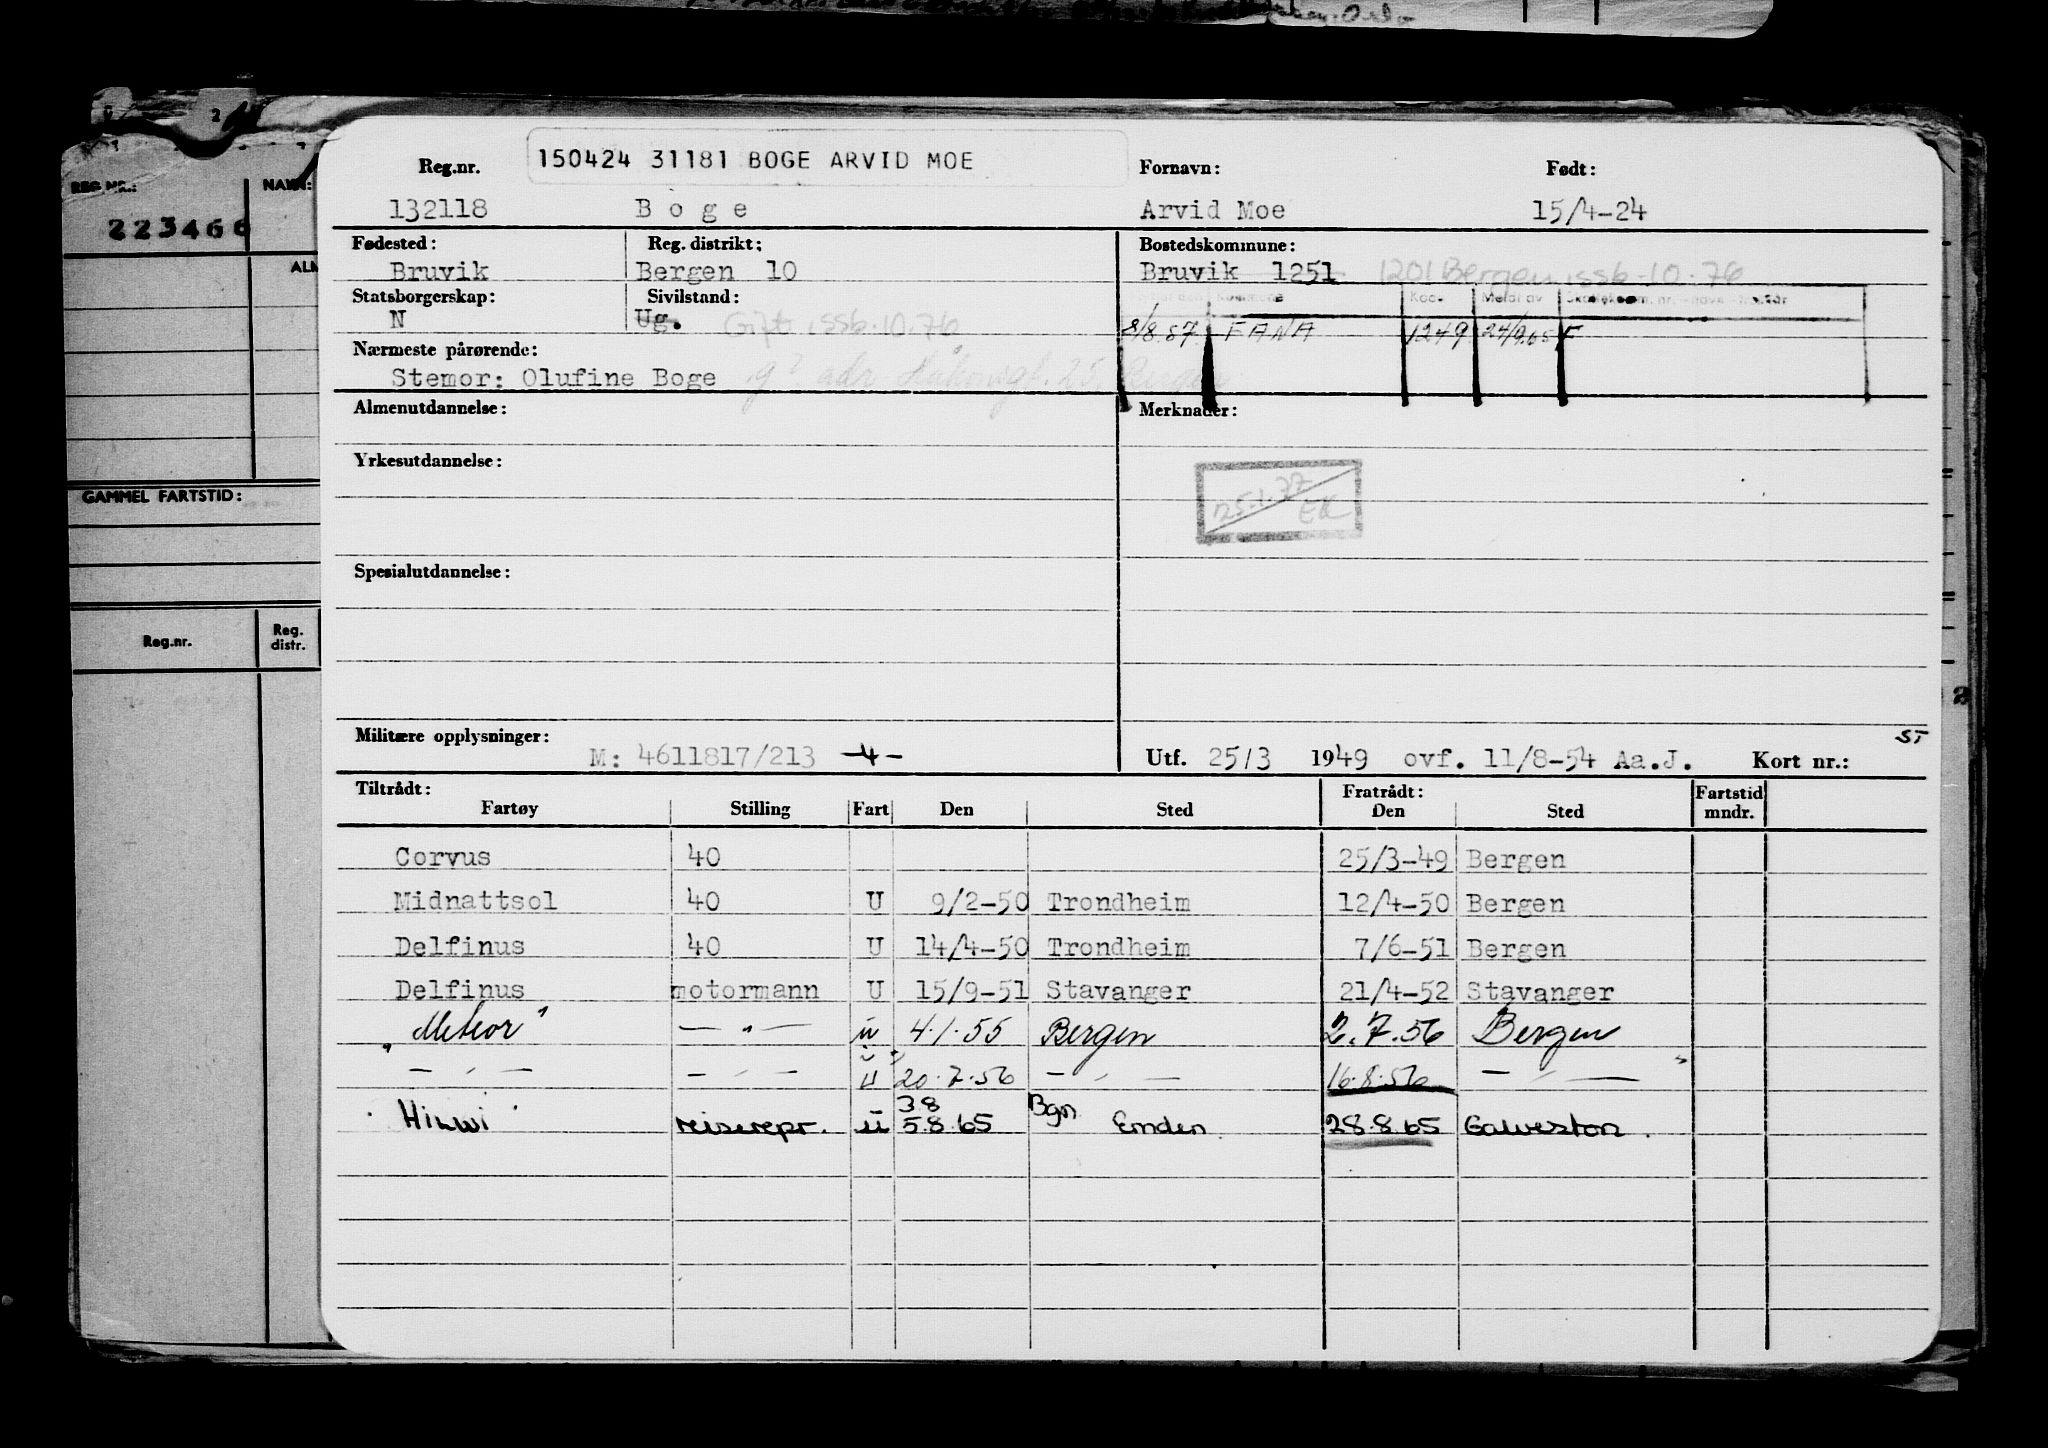 Reg.nr. 150424 31181 BOGE ARVID MOE Fornavn: Født:
132118 B o g e Arvid Moe 15/4-24
Fødested: Reg. distrikt: Bostedskommune:
Bruvik Bergen 10 Bruvik 1251 1201 Bergen, ssb-10-76
Statsborgerskap: Sivilstand:
N Ug. Gift, ssb.10.76 8/8.57 FANA 1249 24/9.65 F
Nærmeste pårørende:
Stemor: Olufine Boge 25, Bergen
Almenutdannelse: Merknader:
Yrkesutdannelse:
25.1.77 EK
Spesialutdannelse:
Militære opplysninger: ST
M: 4611817/213 -4- Utf. 25/3 1949 ovf. 11/8-54 Aa.J. Kort nr.:
Tiltrådt: Fratrådt: Fartstid
Fartøy Stilling Fart Den Sted Den Sted mndr.
Corvus 40 25/3-49 Bergen
Midnattsol 40 U 9/2-50 Trondheim 12/4-50 Bergen
Delfinus 40 U 14/4-50 Trondheim 7/6-51 Bergen
Delfinus motormann U 15/9-51 Stavanger 21/4-52 Stavanger
"Meteor" — " — u 4.1.55 Bergen 2.7.56 Bergen
— " — — " — u 20.7.56 — " — 16.8.56 — " —
3.8 Bgn
Hilwi reiserepr. u 5.8.65 Emden 28.8.65 Galveston.
REG NR.: NAVN:
223466
ALM
GAMMEL FARTSTID:
Reg.nr. Reg. distr.
2
Oslo